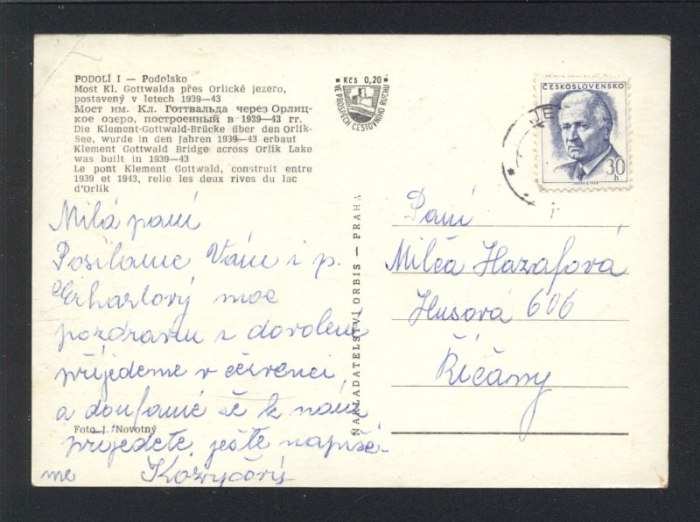 PODOLÍ I — Podolsko
Most Kl. Gottwalda přes Orlické jezero,
postavený v letech 1939—43
Мост им. Кл. Готтвальда через Орлиц-
кое озеро, построенный в 1939—43 гг.
Die Klement-Gottwald-Brücke über den Orlík-
See, wurde in den Jahren 1939—43 erbaut
Klement Gottwald Bridge across Orlík Lake
was built in 1939—43
Le pont Klement Gottwald, construit entre
1939 et 1943, relie les deux rives du lac
d'Orlík
Kčs 0,20
VE PROSPĚCH CESTOVNÍHO RUCHU
ČESKOSLOVENSKO
30
h
JE
NAKLADATELSTVÍ ORBIS — PRAHA
Milá paní
Posílame Vám i p.
Erhartový moc
pozdravu z dovolené
přijedeme v červenci
a doufamé že k nám
přijedete, ještě napíše-
me
Foto J. Novotný
Paní
Milča Hazafová
Husová 606
Říčany